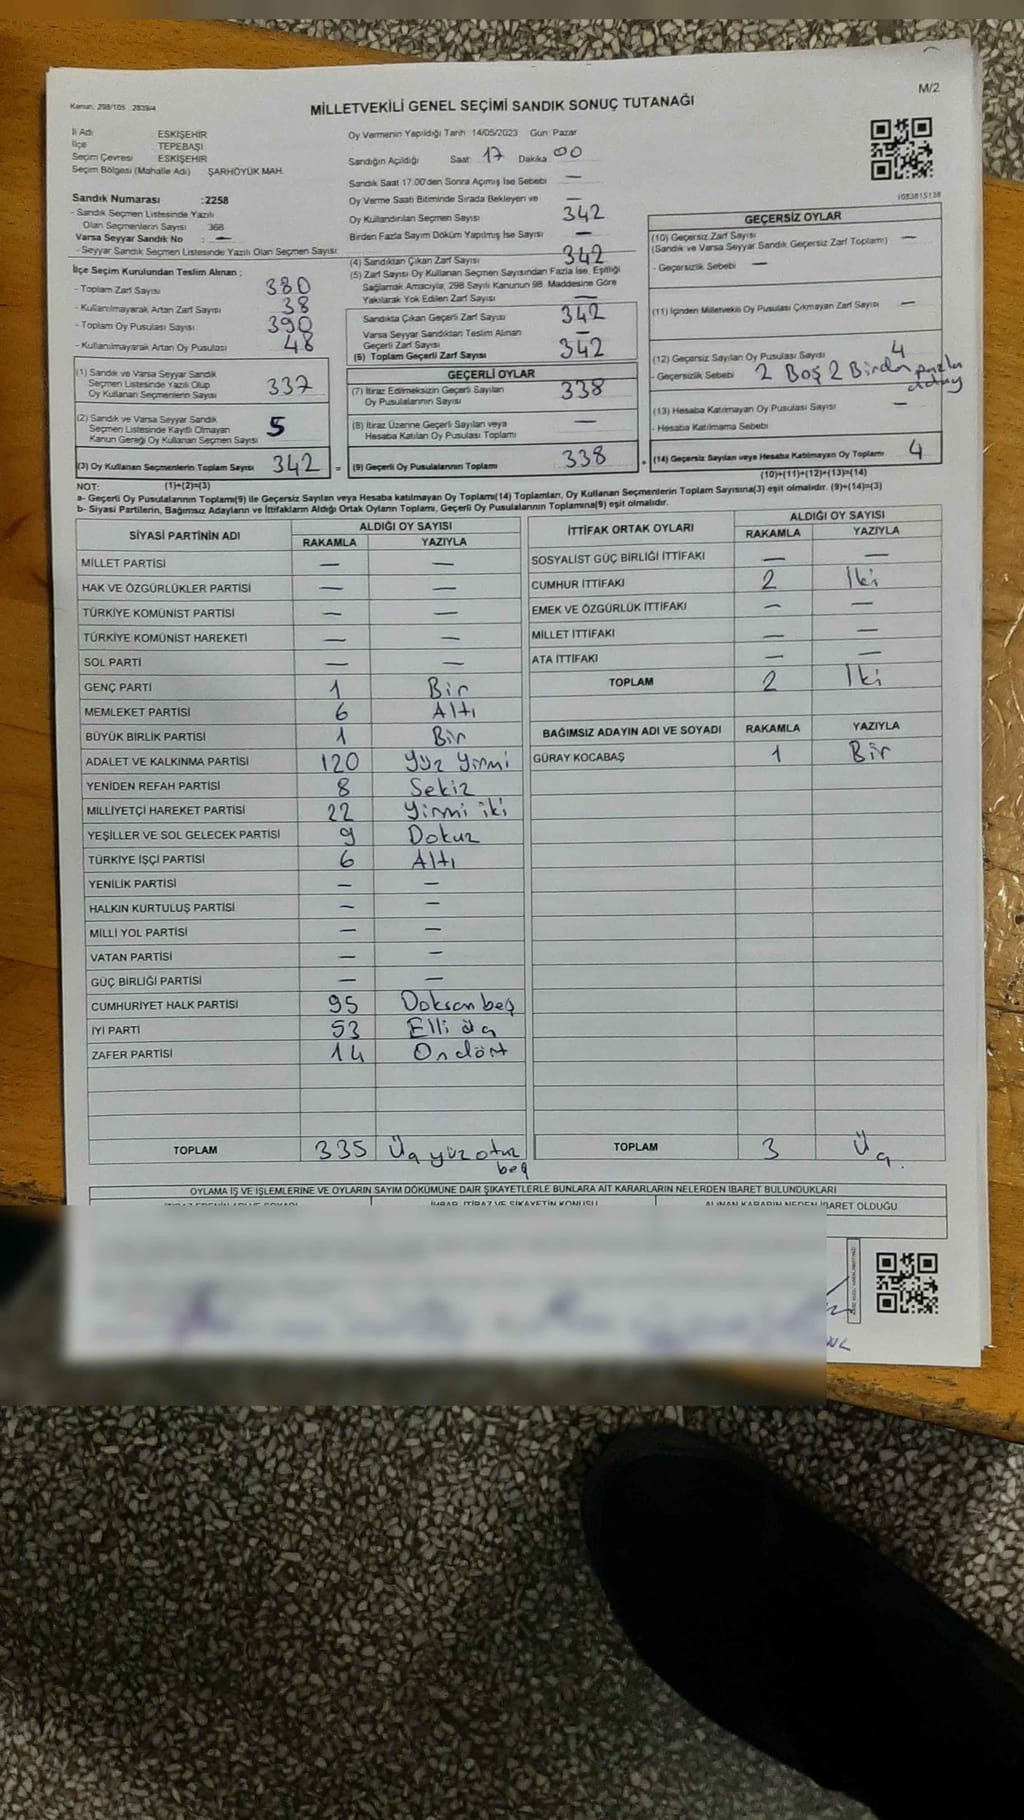 M/2
Kanun: 298/105 : 2839/4
MİLLETVEKİLİ GENEL SEÇİMİ SANDIK SONUÇ TUTANAĞI
İl Adı : ESKİŞEHİR
İlçe : TEPEBAŞI
Seçim Çevresi : ESKİŞEHİR
Seçim Bölgesi (Mahalle Adı) ŞARHÖYÜK MAH.
Sandık Numarası : 2258
- Sandık Seçmen Listesinde Yazılı
Olan Seçmenlerin Sayısı 368
Varsa Seyyar Sandık No : —
- Seyyar Sandık Seçmen Listesinde Yazılı Olan Seçmen Sayısı:
İlçe Seçim Kurulundan Teslim Alınan ;
- Toplam Zarf Sayısı 380
- Kullanılmayarak Artan Zarf Sayısı 38
- Toplam Oy Pusulası Sayısı 390
- Kullanılmayarak Artan Oy Pusulası 48
(1) Sandık ve Varsa Seyyar Sandık
Seçmen Listesinde Yazılı Olup
Oy Kullanan Seçmenlerin Sayısı 337
(2) Sandık ve Varsa Seyyar Sandık
Seçmen Listesinde Kayıtlı Olmayan
Kanun Gereği Oy Kullanan Seçmen Sayısı 5
(3) Oy Kullanan Seçmenlerin Toplam Sayısı 342 =
Oy Vermenin Yapıldığı Tarih 14/05/2023 Gün Pazar
Sandığın Açıldığı Saat: 17 Dakika 00
Sandık Saat 17:00'den Sonra Açımış İse Sebebi —
Oy Verme Saati Bitiminde Sırada Bekleyen ve —
Oy Kullandırılan Seçmen Sayısı 342
Birden Fazla Sayım Döküm Yapılmış İse Sayısı —
(4) Sandıktan Çıkan Zarf Sayısı 342
(5) Zarf Sayısı Oy Kullanan Seçmen Sayısından Fazla İse, Eşitliği
Sağlamak Amacıyla, 298 Sayılı Kanunun 98. Maddesine Göre
Yakılarak Yok Edilen Zarf Sayısı —
Sandıkta Çıkan Geçerli Zarf Sayısı 342
Varsa Seyyar Sandıktan Teslim Alınan
Geçerli Zarf Sayısı —
(6) Toplam Geçerli Zarf Sayısı 342
GEÇERLİ OYLAR
(7) İtiraz Edilmeksizin Geçerli Sayılan
Oy Pusulalarının Sayısı 338
(8) İtiraz Üzerine Geçerli Sayılan veya
Hesaba Katılan Oy Pusulaları Toplamı —
(9) Geçerli Oy Pusulalarının Toplamı 338 +
1083815138
GEÇERSİZ OYLAR
(10) Geçersiz Zarf Sayısı —
(Sandık ve Varsa Seyyar Sandık Geçersiz Zarf Toplamı)
- Geçersizlik Sebebi —
(11) İçinden Milletvekili Oy Pusulası Çıkmayan Zarf Sayısı —
(12) Geçersiz Sayılan Oy Pusulası Sayısı 4
- Geçersizlik Sebebi 2 Boş 2 Birden fazla
(13) Hesaba Katılmayan Oy Pusulası Sayısı —
- Hesaba Katılmama Sebebi
(14) Geçersiz Sayılan veya Hesaba Katılmayan Oy Toplamı 4
NOT: (1)+(2)=(3) (10)+(11)+(12)+(13)=(14)
a- Geçerli Oy Pusulalarının Toplamı(9) ile Geçersiz Sayılan veya Hesaba katılmayan Oy Toplamı(14) Toplamları, Oy Kullanan Seçmenlerin Toplam Sayısına(3) eşit olmalıdır. (9)+(14)=(3)
b- Siyasi Partilerin, Bağımsız Adayların ve İttifakların Aldığı Ortak Oyların Toplamı, Geçerli Oy Pusulalarının Toplamına(9) eşit olmalıdır.
SİYASİ PARTİNİN ADI ALDIĞI OY SAYISI
RAKAMLA YAZIYLA
MİLLET PARTİSİ — —
HAK VE ÖZGÜRLÜKLER PARTİSİ — —
TÜRKİYE KOMÜNİST PARTİSİ — —
TÜRKİYE KOMÜNİST HAREKETİ — —
SOL PARTİ — —
GENÇ PARTİ 1 Bir
MEMLEKET PARTİSİ 6 Altı
BÜYÜK BİRLİK PARTİSİ 1 Bir
ADALET VE KALKINMA PARTİSİ 120 Yüz Yirmi
YENİDEN REFAH PARTİSİ 8 Sekiz
MİLLİYETÇİ HAREKET PARTİSİ 22 Yirmi iki
YEŞİLLER VE SOL GELECEK PARTİSİ 9 Dokuz
TÜRKİYE İŞÇİ PARTİSİ 6 Altı
YENİLİK PARTİSİ — —
HALKIN KURTULUŞ PARTİSİ — —
MİLLİ YOL PARTİSİ — —
VATAN PARTİSİ — —
GÜÇ BİRLİĞİ PARTİSİ — —
CUMHURİYET HALK PARTİSİ 95 Doksan beş
İYİ PARTİ 53 Elli üç
ZAFER PARTİSİ 14 On dört
TOPLAM 335 Üç yüz otuz
beş
İTTİFAK ORTAK OYLARI ALDIĞI OY SAYISI
RAKAMLA YAZIYLA
SOSYALİST GÜÇ BİRLİĞİ İTTİFAKI — —
CUMHUR İTTİFAKI 2 İki
EMEK VE ÖZGÜRLÜK İTTİFAKI — —
MİLLET İTTİFAKI — —
ATA İTTİFAKI — —
TOPLAM 2 İki
BAĞIMSIZ ADAYIN ADI VE SOYADI RAKAMLA YAZIYLA
GÜRAY KOCABAŞ 1 Bir
TOPLAM 3 Üç.
OYLAMA İŞ VE İŞLEMLERİNE VE OYLARIN SAYIM DÖKÜMÜNE DAİR ŞİKAYETLERLE BUNLARA AİT KARARLARIN NELERDEN İBARET BULUNDUKLARI
İHBAR, İTİRAZ VE ŞİKAYETİN KONUSU ALINAN KARARIN NEDEN İBARET OLDUĞU